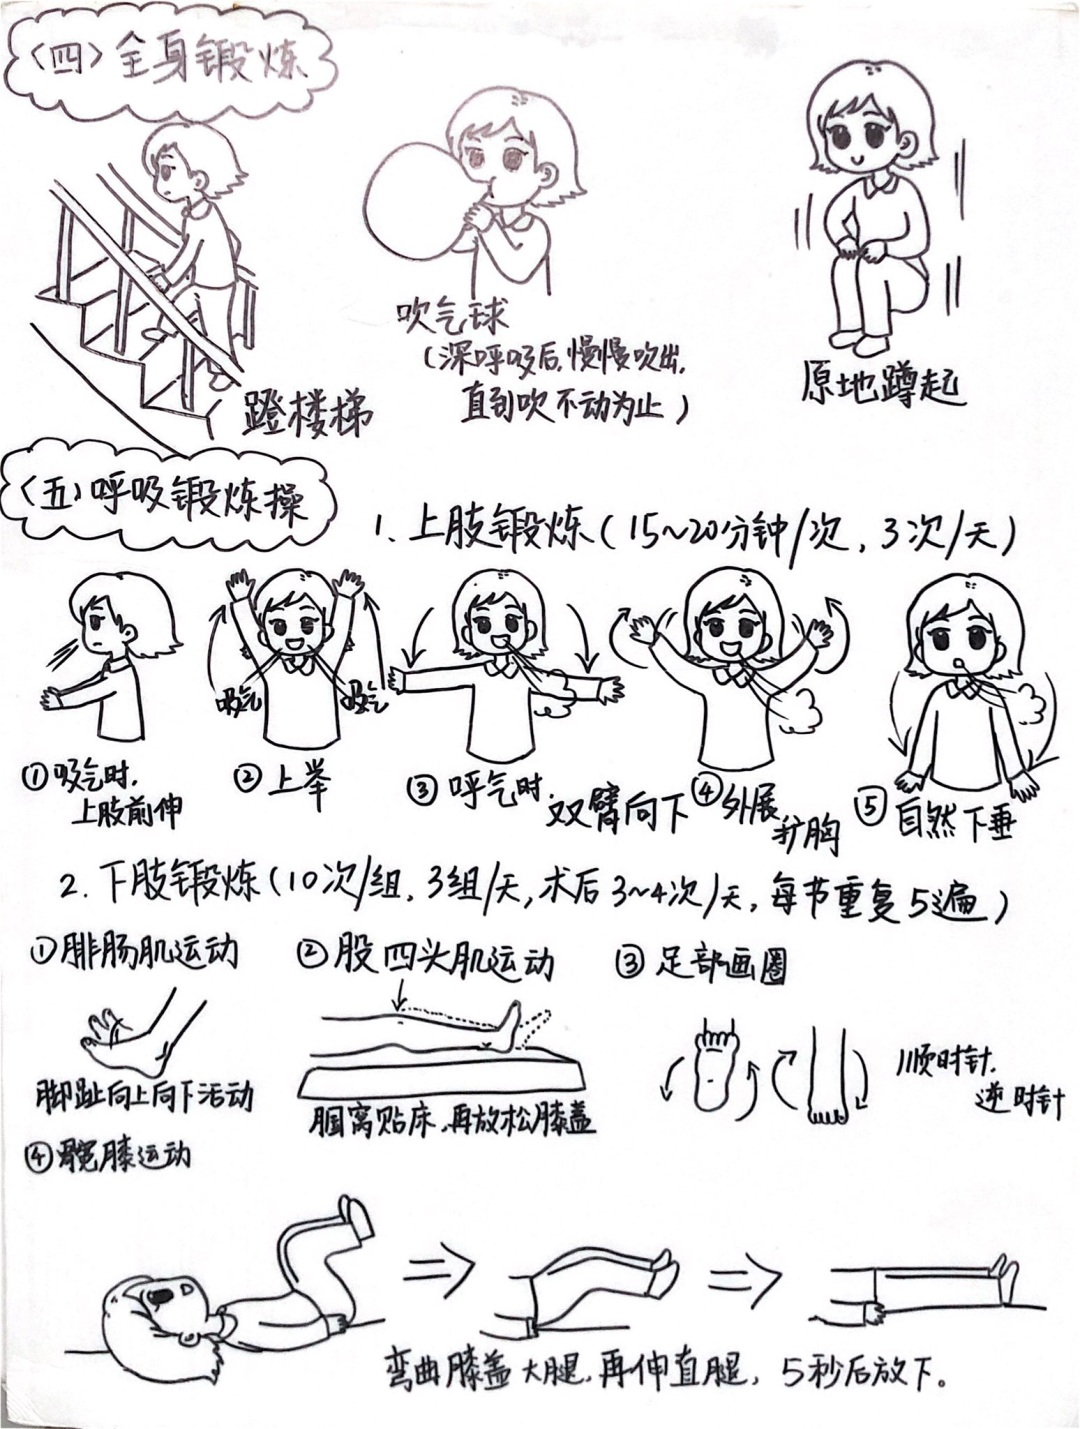 〈四〉全身锻炼
蹬楼梯
吹气球
(深呼吸后,慢慢吹出,
直到吹不动为止)
原地蹲起
〈五〉呼吸锻炼操
1.上肢锻炼(15~20分钟/次,3次/天)
吸气
吸气
①吸气时,
上肢前伸
②上举
③呼气时,双臂向下
④外展,
扩胸
⑤自然下垂
2.下肢锻炼(10次/组,3组/天,术后3~4次/天,每节重复5遍)
①腓肠肌运动
脚趾向上向下活动
②股四头肌运动
腘窝贴床,再放松膝盖
③足部画圈
顺时针,
逆时针
④髋膝运动
弯曲膝盖大腿,再伸直腿,5秒后放下。